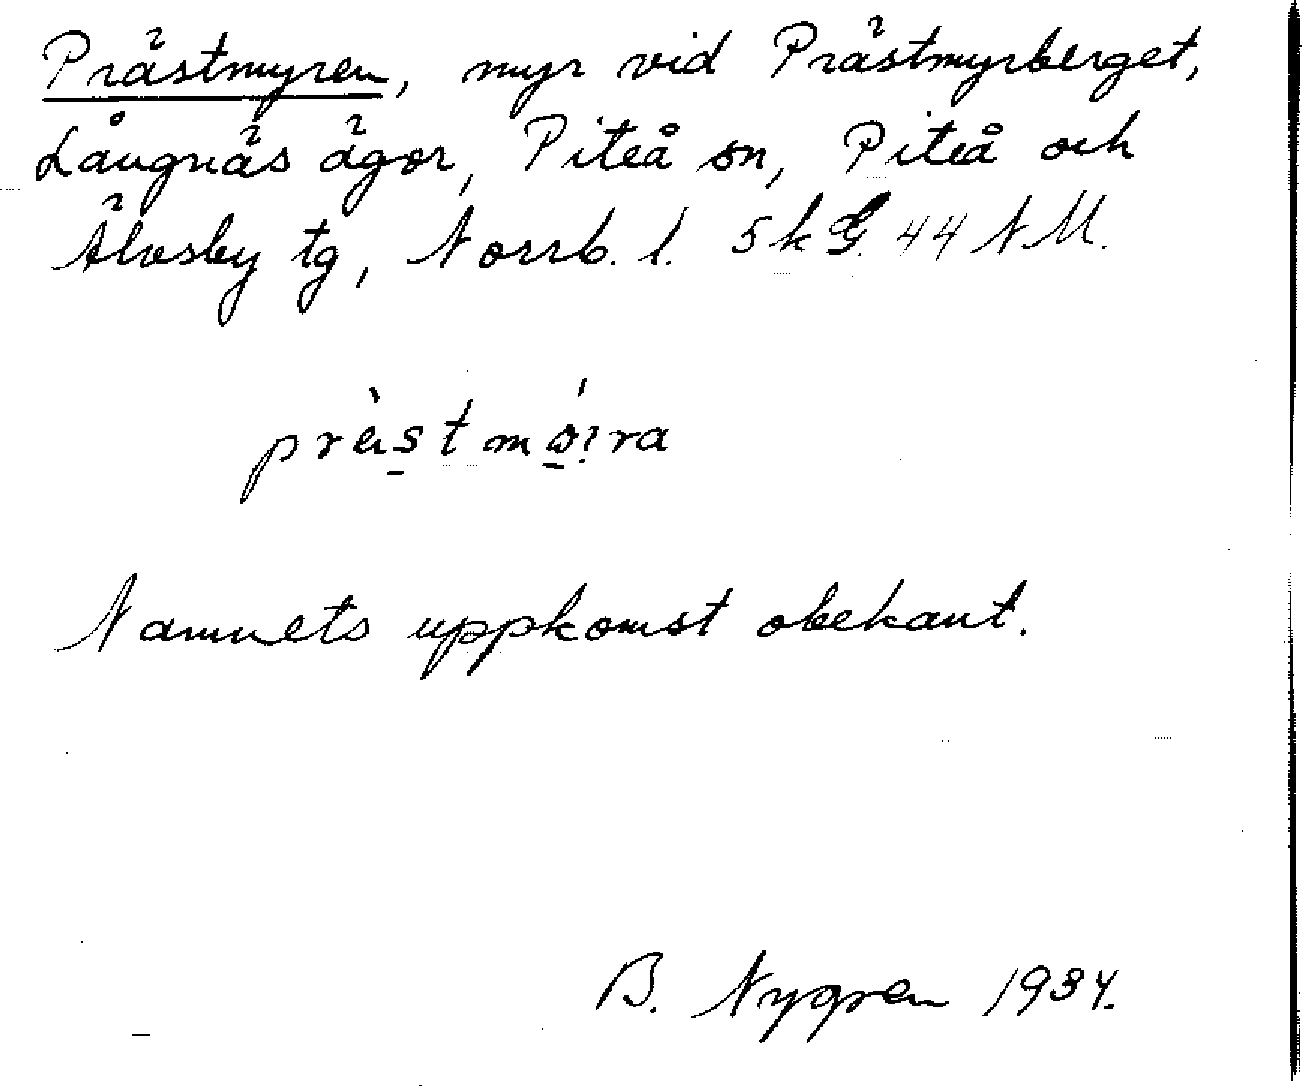 Prästmyren, myr vid Prästmyrberget,
Långnäs ägor, Piteå sn, Piteå och
Älvsby tg, Norrb. l. 5 k G. 44 N M.
Namnets uppkomst obekant.
B. Nygren 1934.